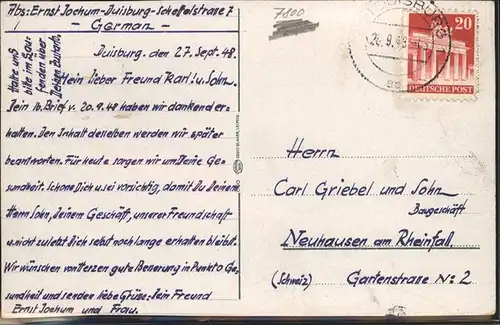 Abs: Ernst Jochum - Duisburg - Scheffelstraße 7
- German -
7800
Duisburg, den 27. Sept. 48.
Mein lieber Freund Karl! u. Sohn.
Dein lb. Brief v. 20.9.48 haben wir dankend er-
halten. Den Inhalt desselben werden wir später
beantworten. Für heute sorgen wir um Deine Ge-
sundheit. Schone Dich u. sei vorsichtig, damit Du Deinem
Herrn Sohn, Deinem Geschäft, unserer Freundschaft
u. nicht zuletzt Dich selbst noch lange erhalten bleibst.
Wir wünschen von Herzen gute Besserung in Punkto Ge-
sundheit und senden liebe Grüsse: Dein Freund
Ernst Jochum und Frau.
DUISBURG
9.48
20
DEUTSCHE POST
Herrn
Carl Griebel und Sohn
Baugeschäft
Neuhausen am Rheinfall.
(Schweiz) Gartenstraße No 2